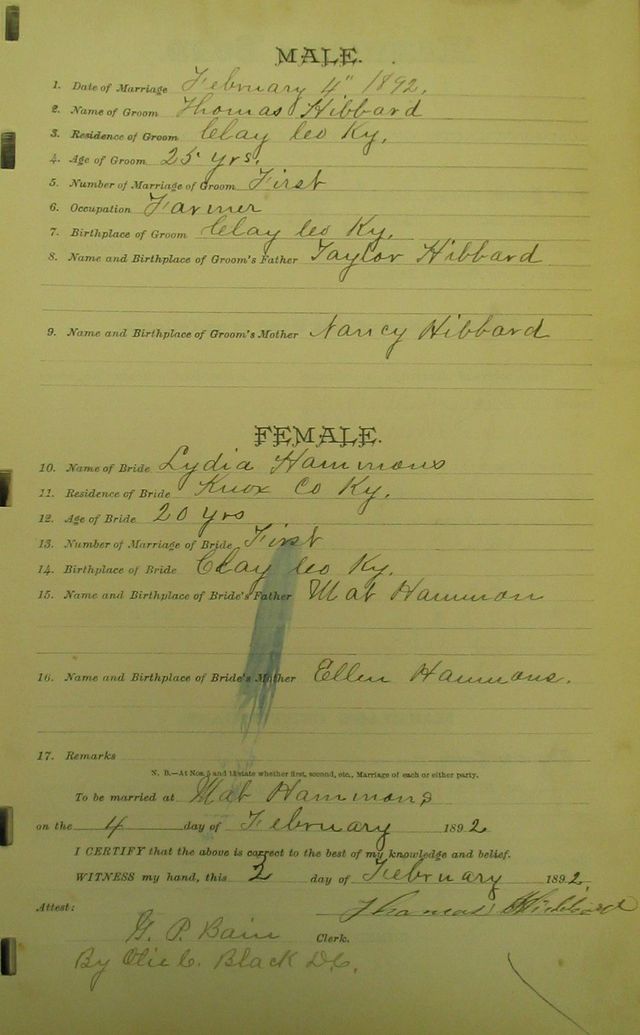 MALE.
1. Date of Marriage February 4" 1892.
2. Name of Groom Thomas Hibbard
3. Residence of Groom Clay Co Ky.
4. Age of Groom 25 yrs.
5. Number of Marriage of Groom First
6. Occupation Farmer
7. Birthplace of Groom Clay Co Ky.
8. Name and Birthplace of Groom's Father Taylor Hibbard
9. Name and Birthplace of Groom's Mother Nancy Hibbard
FEMALE.
10. Name of Bride Lydia Hammons
11. Residence of Bride Knox Co Ky.
12. Age of Bride 20 yrs
13. Number of Marriage of Bride First
14. Birthplace of Bride Clay Co Ky.
15. Name and Birthplace of Bride's Father Mat Hammon
16. Name and Birthplace of Bride's Mother Ellen Hammons.
17. Remarks
N. B.—At Nos. 5 and 13 state whether first, second, etc., Marriage of each or either party.
To be married at Mat Hammons
on the 4 day of February 1892
I CERTIFY that the above is correct to the best of my knowledge and belief.
WITNESS my hand, this 2 day of February 1892.
Attest: Thomas Hibbard
G. P. Bain Clerk.
By Olie C. Black D.C.